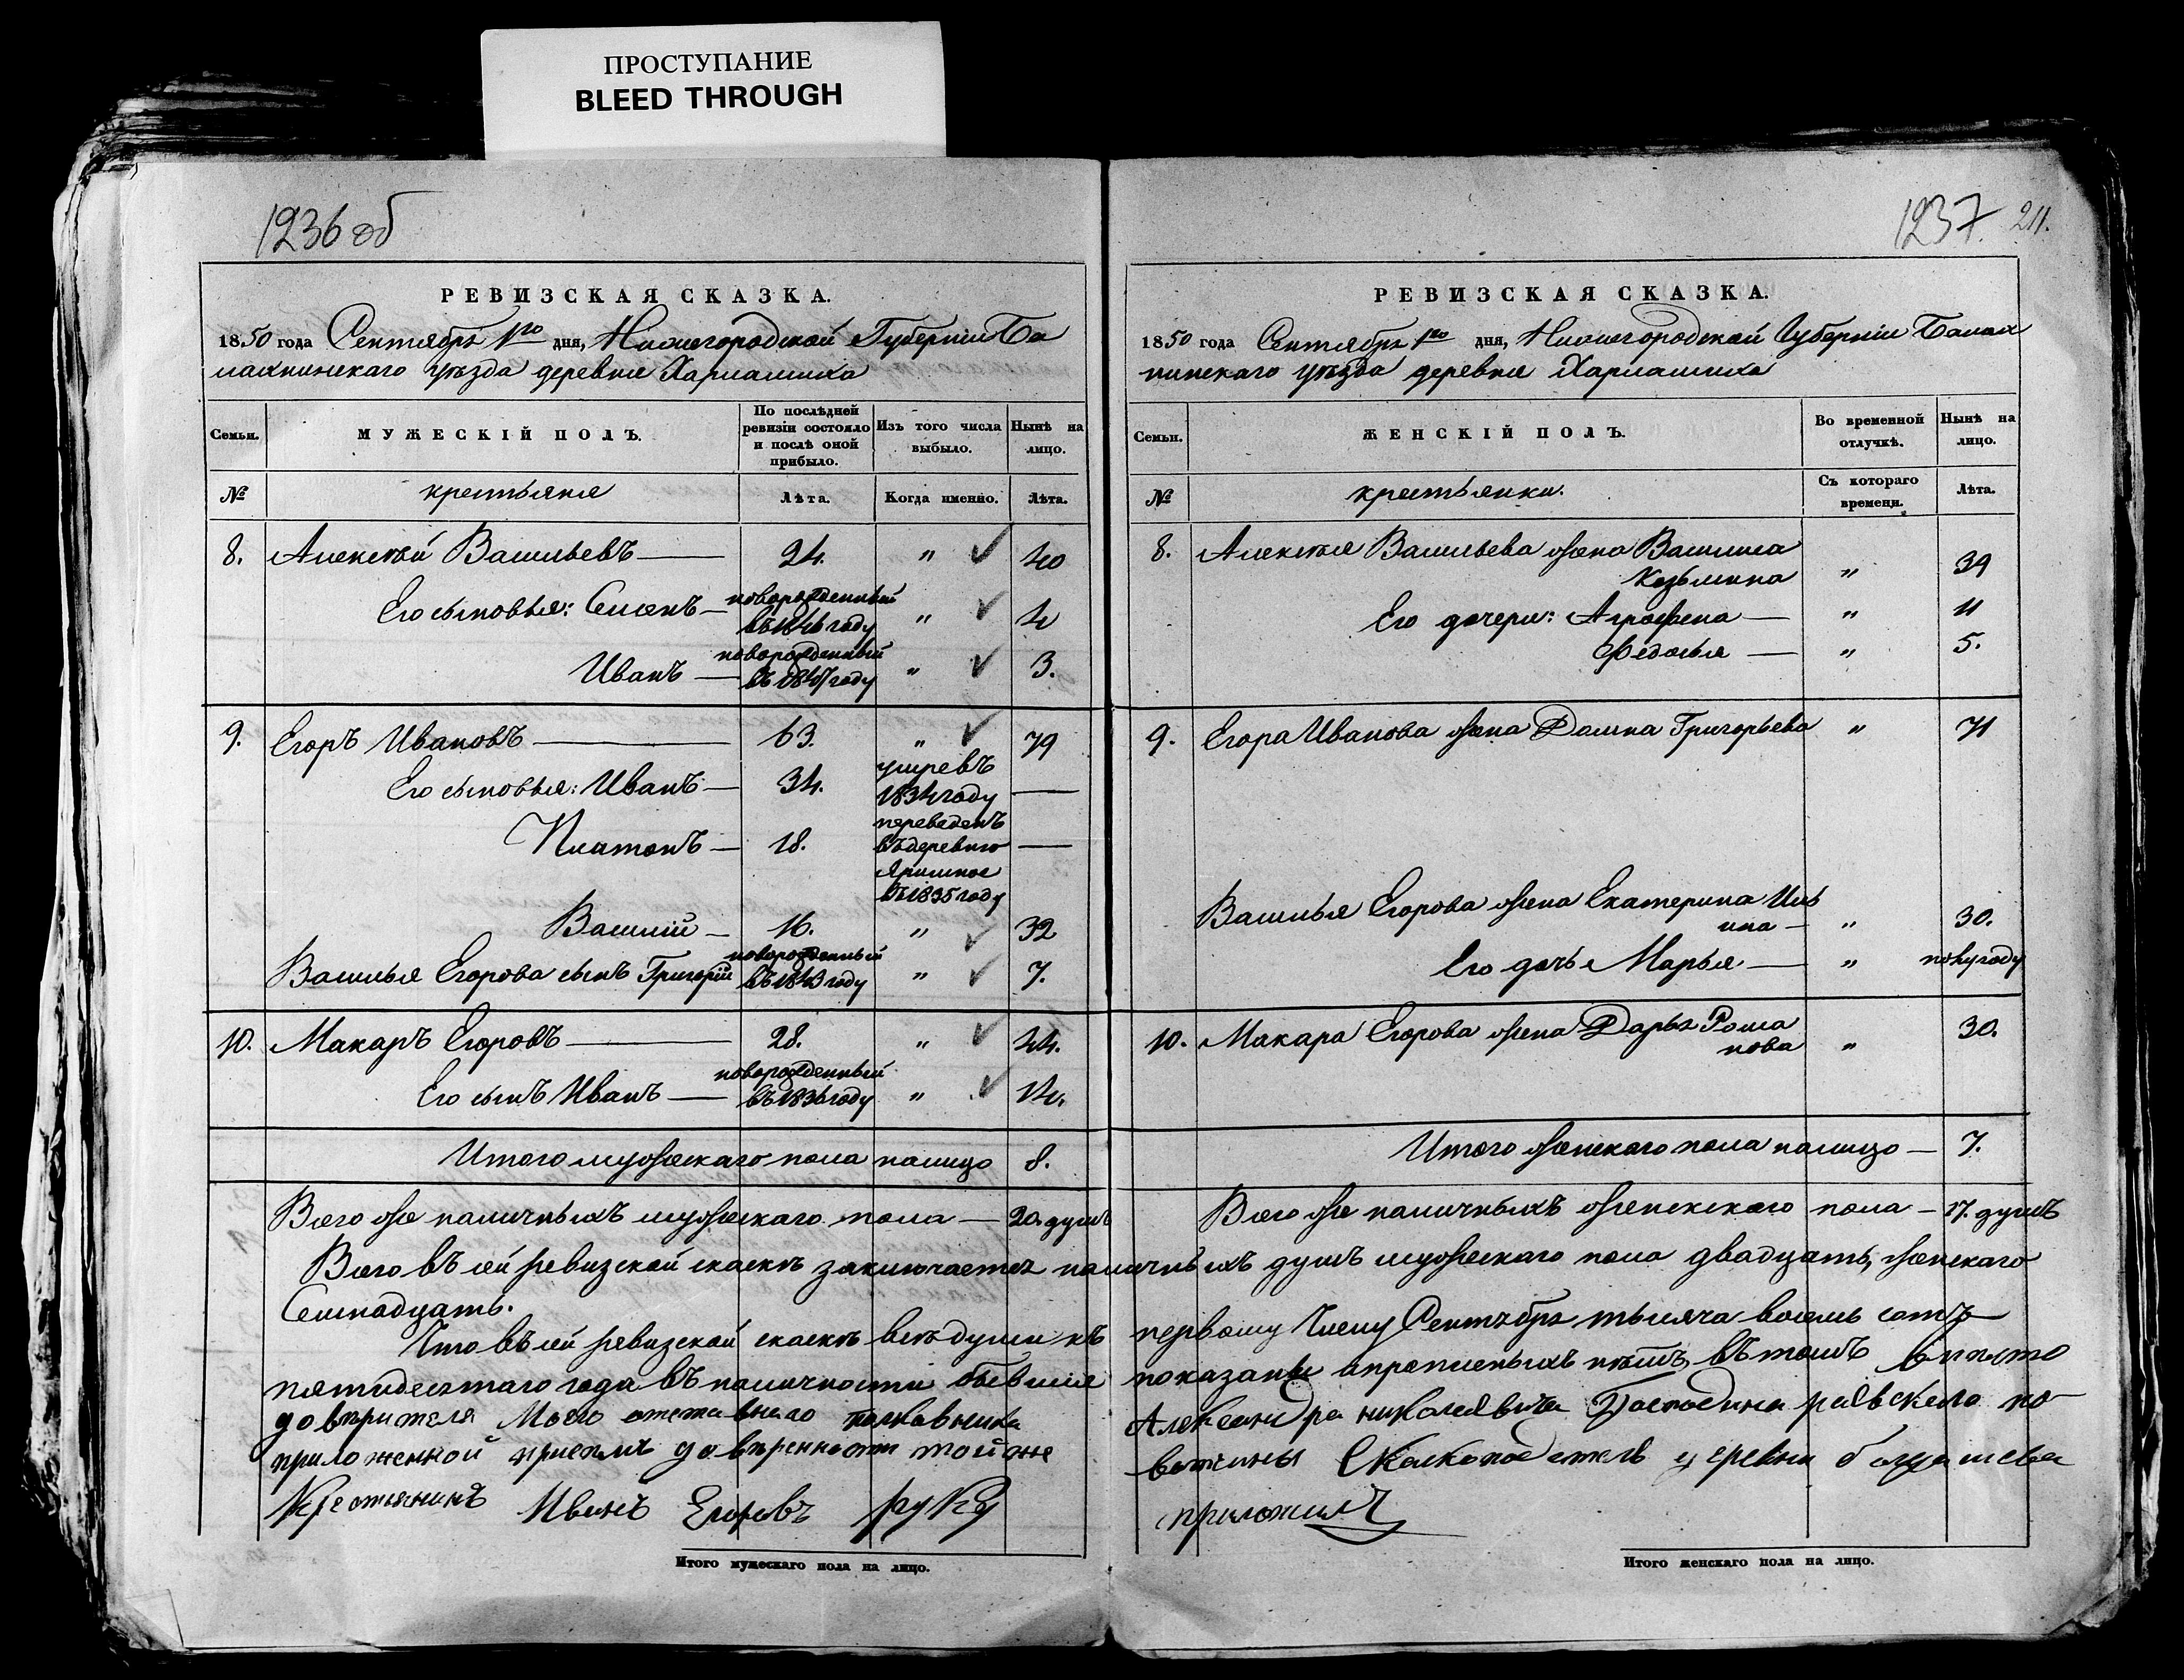 ПРОСТУПАНИЕ
BLEED THROUGH
1236 об
РЕВИЗСКАЯ СКАЗКА.
1850 года Сентября 1го дня, Нижегородской Губерніи Ба
лахнинскаго уѣзда деревни Харламиха
Семьи. МУЖЕСКІЙ ПОЛЪ. По послѣдней ревизіи состояло и послѣ оной прибыло. Изъ того числа выбыло. Нынѣ на лицо.
№ крестьяне Лѣта. Когда именно. Лѣта.
8. Алексѣй Васильевъ — 24. " 40
Его сыновья: Семенъ — новорожденный въ 1846 году " 4
Иванъ — новорожденный въ 1847 году " 3.
9. Егоръ Ивановъ — 63. " 79
Его сыновья: Иванъ — 34. умре въ 1834 году —
Платонъ — 18. переведенъ въ деревню въ 1835 году —
Василій — 16. " 32
Василья Егорова сынъ Григорій новорожденный въ 1843 году " 7.
10. Макаръ Егоровъ — 28. " 44.
Его сынъ Иванъ — новорожденный въ 1836 году " 14.
Итого мужескаго пола налицо 8.
Всего же наличныхъ мужескаго пола — 20. душъ
1237. 211.
РЕВИЗСКАЯ СКАЗКА.
1850 года Сентября 1го дня, Нижегородской Губерніи Балах
нинскаго уѣзда деревни Харламиха
Семьи. ЖЕНСКІЙ ПОЛЪ. Во временной отлучкѣ. Нынѣ на лицо.
№ крестьянки. Съ котораго времени. Лѣта.
8. Алексѣя Васильева жена Василиса
Козьмина " 39
Его дочери: Аграфена — " 11
Федосья — " 5.
9. Егора Иванова жена Домна Григорьева " 71
Василья Егорова жена Екатерина Иль
ина — " 30.
Его дочь Марья — " полугоду
10. Макара Егорова жена Дарья Рома
нова " 30.
Итого женскаго пола налицо — 7.
Всего же наличныхъ женскаго пола — 17. душъ
Всего въ сей ревизской скаскѣ заключается наличныхъ душъ мужескаго пола двадцать, женскаго
Семнадцать.
Что въ сей ревизской скаскѣ всѣ души къ первому Числу Сентября тысяча восемь сотъ
пятидесятаго года въ наличности бывшия показаны и прописныхъ нѣтъ, въ томъ
довѣрителя Моего отставнаго полковника Александра николаевича Господина раевскаго по
приложенной присемъ довѣренности той же вотчины
Крестьянинъ Иванъ Егоровъ руку приложилъ
Итого мужескаго пола на лицо.
Итого женскаго пола на лицо.